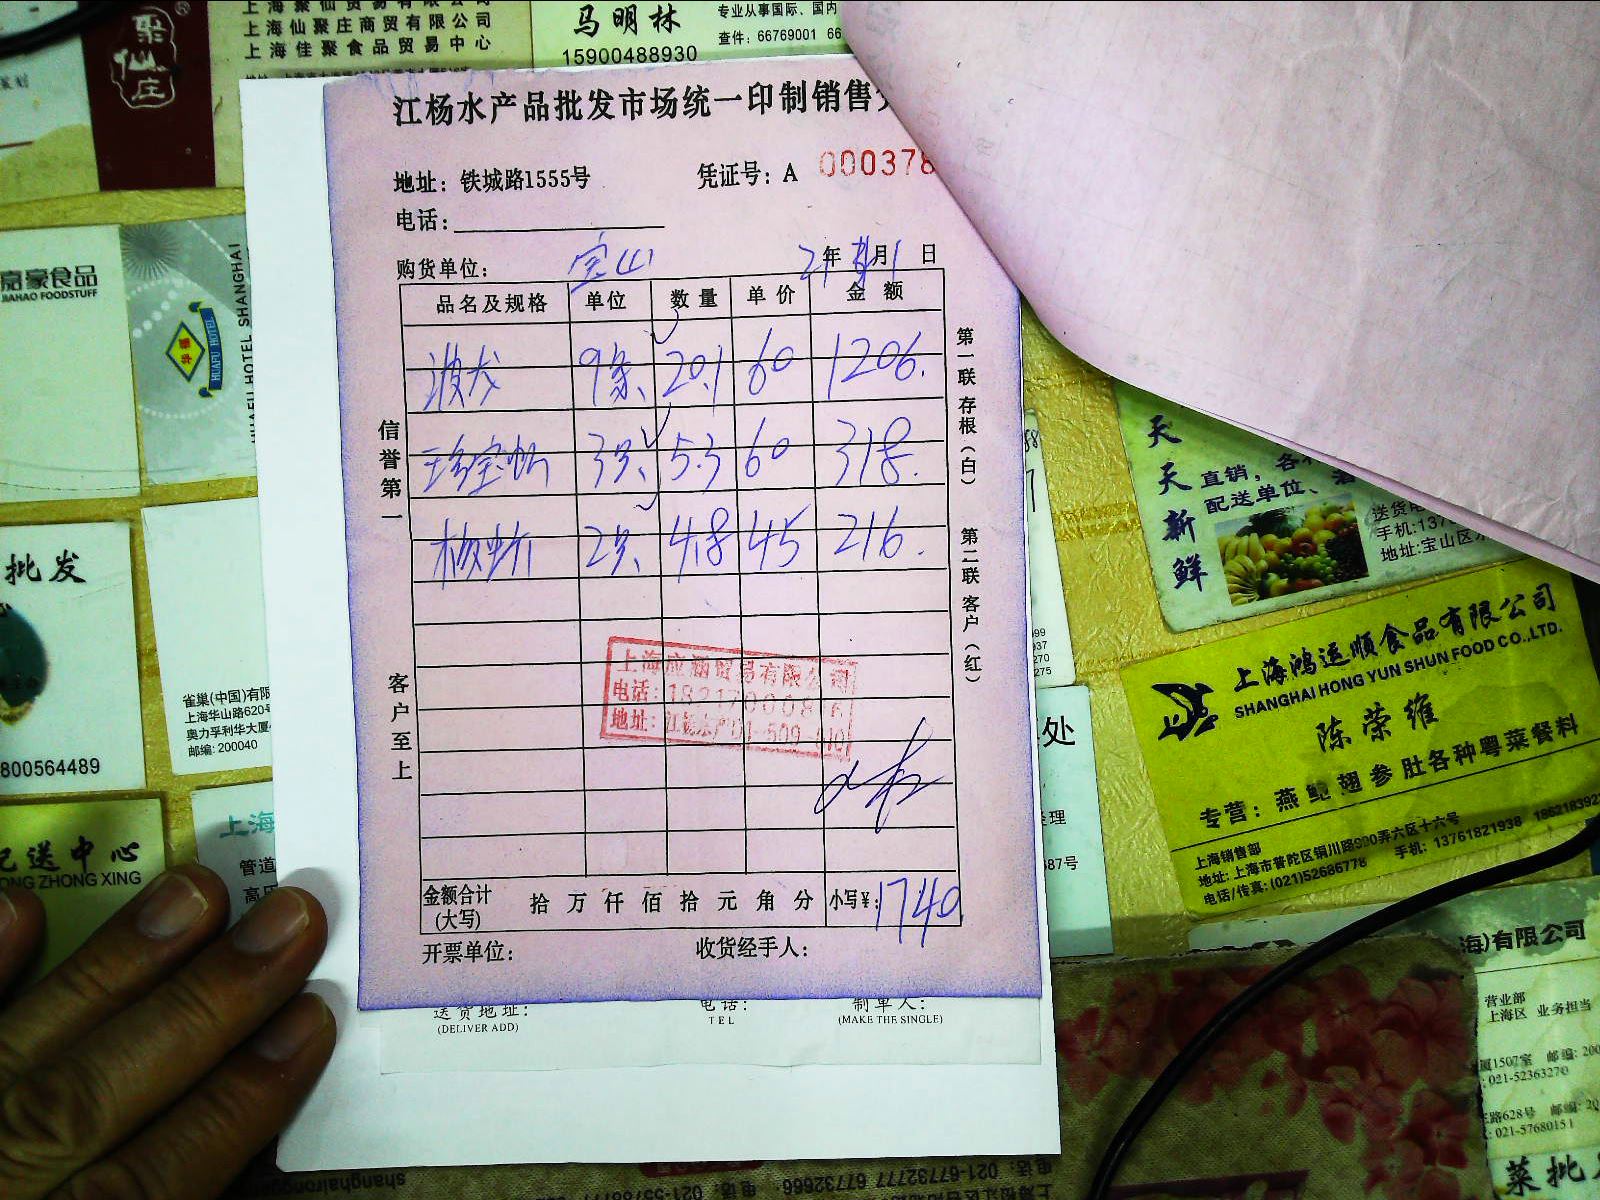 上海仙聚庄商贸有限公司
上海佳聚食品贸易中心
聚仙庄
马明林
15900488930
专业从事国际、国内
查件: 66769001 66
江杨水产品批发市场统一印制销售
地址: 铁城路1555号
凭证号: A 000378
电话:
购货单位: 宝山
21年 月1日
品名及规格 单位 数量 单价 金额
波龙 9条 20.1 60 1206.
珍宝蟹 3只 5.3 60 318.
2只 4.8 45 216.
信誉第一
客户至上
第一联 存根(白)
第二联 客户(红)
上海应涵贸易有限公司
电话:
地址:
金额合计(大写) 拾 万 仟 佰 拾 元 角 分 小写¥: 1740
开票单位:
收货经手人:
送货地址:
(DELIVER ADD)
电话:
TEL
制单人:
(MAKE THE SINGLE)
嘉豪食品
JIAHAO FOODSTUFF
HUAFU HOTEL
HUAFU HOTEL SHANGHAI
批发
800564489
雀巢(中国)有限
上海华山路620号
奥力孚利华大厦
邮编: 200040
上海
管道
配送中心
ONG ZHONG XING
天天新鲜
直销,各
配送单位、酒
送货电
手机:137
地址:宝山区
处
经理
687号
上海鸿运顺食品有限公司
SHANGHAI HONG YUN SHUN FOOD CO.,LTD.
陈荣维
专营: 燕鲍翅参肚各种粤菜餐料
上海销售部
地址: 上海市普陀区铜川路990弄六区十六号
电话/传真: (021)52686778 手机: 13761821938 1862183923
海)有限公司
营业部
上海区 业务担当
厦1507室 邮编: 200
: 021-52363270
路628号 邮编: 20
: 021-57680151
菜批